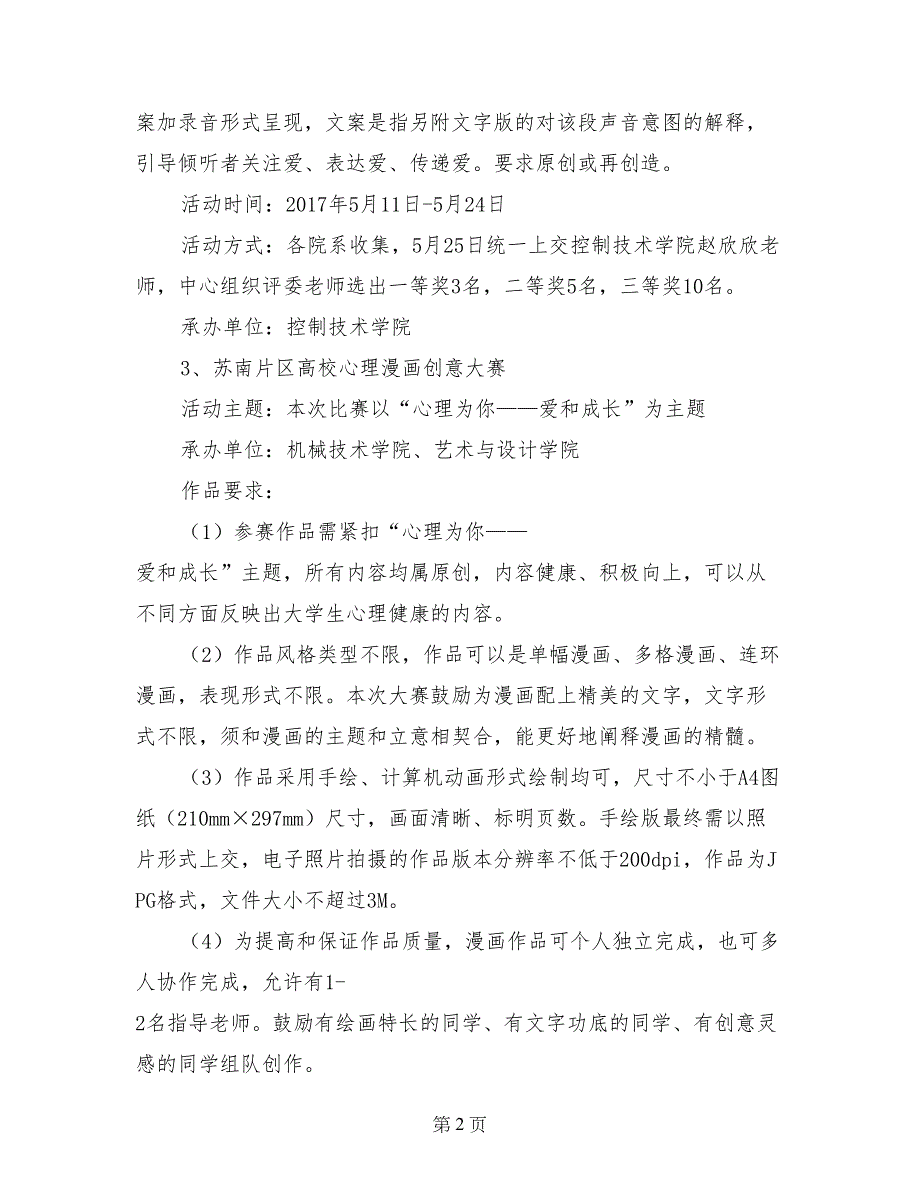 案加录音形式呈现，文案是指另附文字版的对该段声音意图的解释，
引导倾听者关注爱、表达爱、传递爱。要求原创或再创造。
活动时间：2017年5月11日-5月24日
活动方式：各院系收集，5月25日统一上交控制技术学院赵欣欣老
师，中心组织评委老师选出一等奖3名，二等奖5名，三等奖10名。
承办单位：控制技术学院
3、苏南片区高校心理漫画创意大赛
活动主题：本次比赛以“心理为你——爱和成长”为主题
承办单位：机械技术学院、艺术与设计学院
作品要求：
（1）参赛作品需紧扣“心理为你——
爱和成长”主题，所有内容均属原创，内容健康、积极向上，可以从
不同方面反映出大学生心理健康的内容。
（2）作品风格类型不限，作品可以是单幅漫画、多格漫画、连环
漫画，表现形式不限。本次大赛鼓励为漫画配上精美的文字，文字形
式不限，须和漫画的主题和立意相契合，能更好地阐释漫画的精髓。
（3）作品采用手绘、计算机动画形式绘制均可，尺寸不小于A4图
纸（210mm×297mm）尺寸，画面清晰、标明页数。手绘版最终需以照
片形式上交，电子照片拍摄的作品版本分辨率不低于200dpi，作品为J
PG格式，文件大小不超过3M。
（4）为提高和保证作品质量，漫画作品可个人独立完成，也可多
人协作完成，允许有1-
2名指导老师。鼓励有绘画特长的同学、有文字功底的同学、有创意灵
感的同学组队创作。
第 2 页